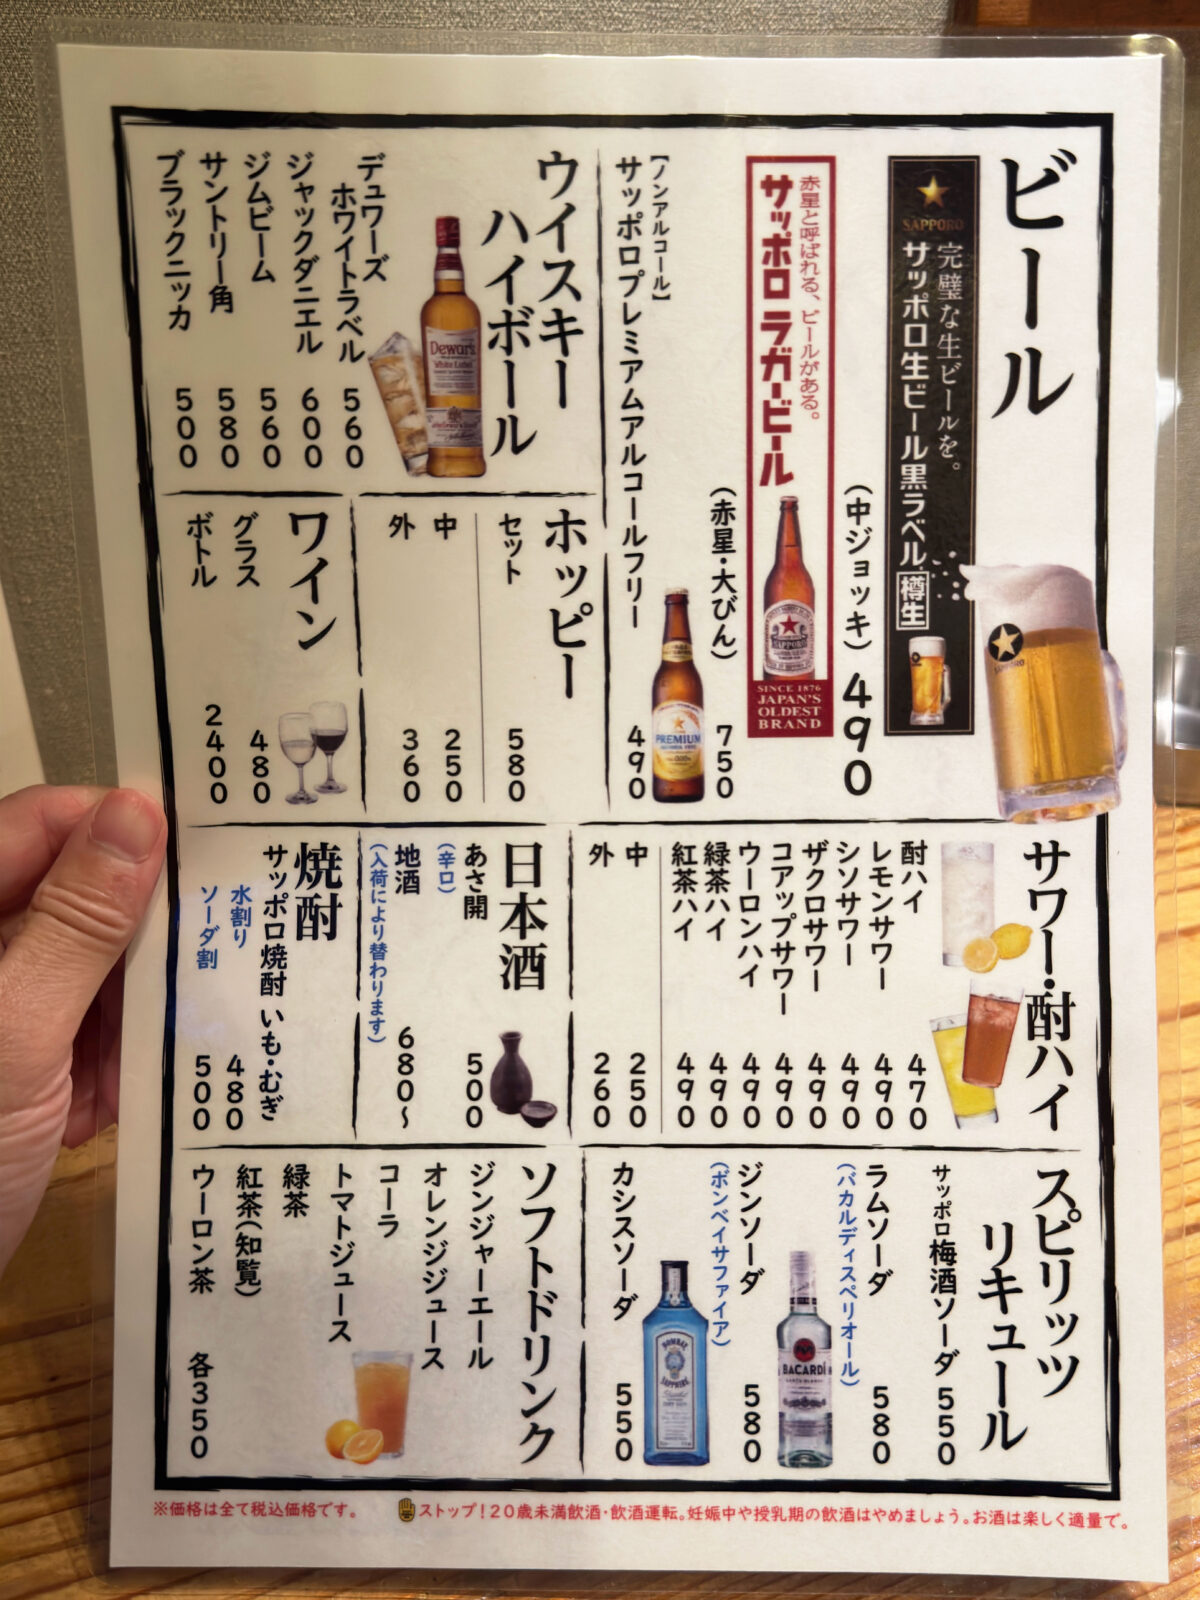 ビール
SAPPORO
完璧な生ビールを。
サッポロ生ビール黒ラベル 樽生
SAPPORO
(中ジョッキ) 490
赤星と呼ばれる、ビールがある。
サッポロ ラガービール
SAPPORO
SINCE 1876
JAPAN'S
OLDEST
BRAND
(赤星・大びん) 750
【ノンアルコール】
サッポロプレミアムアルコールフリー 490
PREMIUM
ウイスキー
ハイボール
Dewar's
White Label
デュワーズ
ホワイトラベル 560
ジャックダニエル 600
ジムビーム 560
サントリー角 580
ブラックニッカ 500
ホッピー
セット 580
中 250
外 360
ワイン
グラス 480
ボトル 2400
サワー・酎ハイ
酎ハイ 470
レモンサワー 490
シソサワー 490
ザクロサワー 490
コアップサワー 490
ウーロンハイ 490
緑茶ハイ 490
紅茶ハイ 490
中 250
外 260
日本酒
あさ開 500
(辛口)
地酒 680〜
(入荷により替わります)
焼酎
サッポロ焼酎 いも・むぎ
水割り 480
ソーダ割 500
スピリッツ
リキュール
サッポロ梅酒ソーダ 550
ラムソーダ 580
(バカルディスペリオール)
BACARDÍ
ジンソーダ 580
(ボンベイサファイア)
BOMBAY
SAPPHIRE
カシスソーダ 550
ソフトドリンク
ジンジャーエール
オレンジジュース
コーラ
トマトジュース
緑茶
紅茶(知覧)
ウーロン茶 各350
※価格は全て税込価格です。
ストップ!20歳未満飲酒・飲酒運転。妊娠中や授乳期の飲酒はやめましょう。お酒は楽しく適量で。